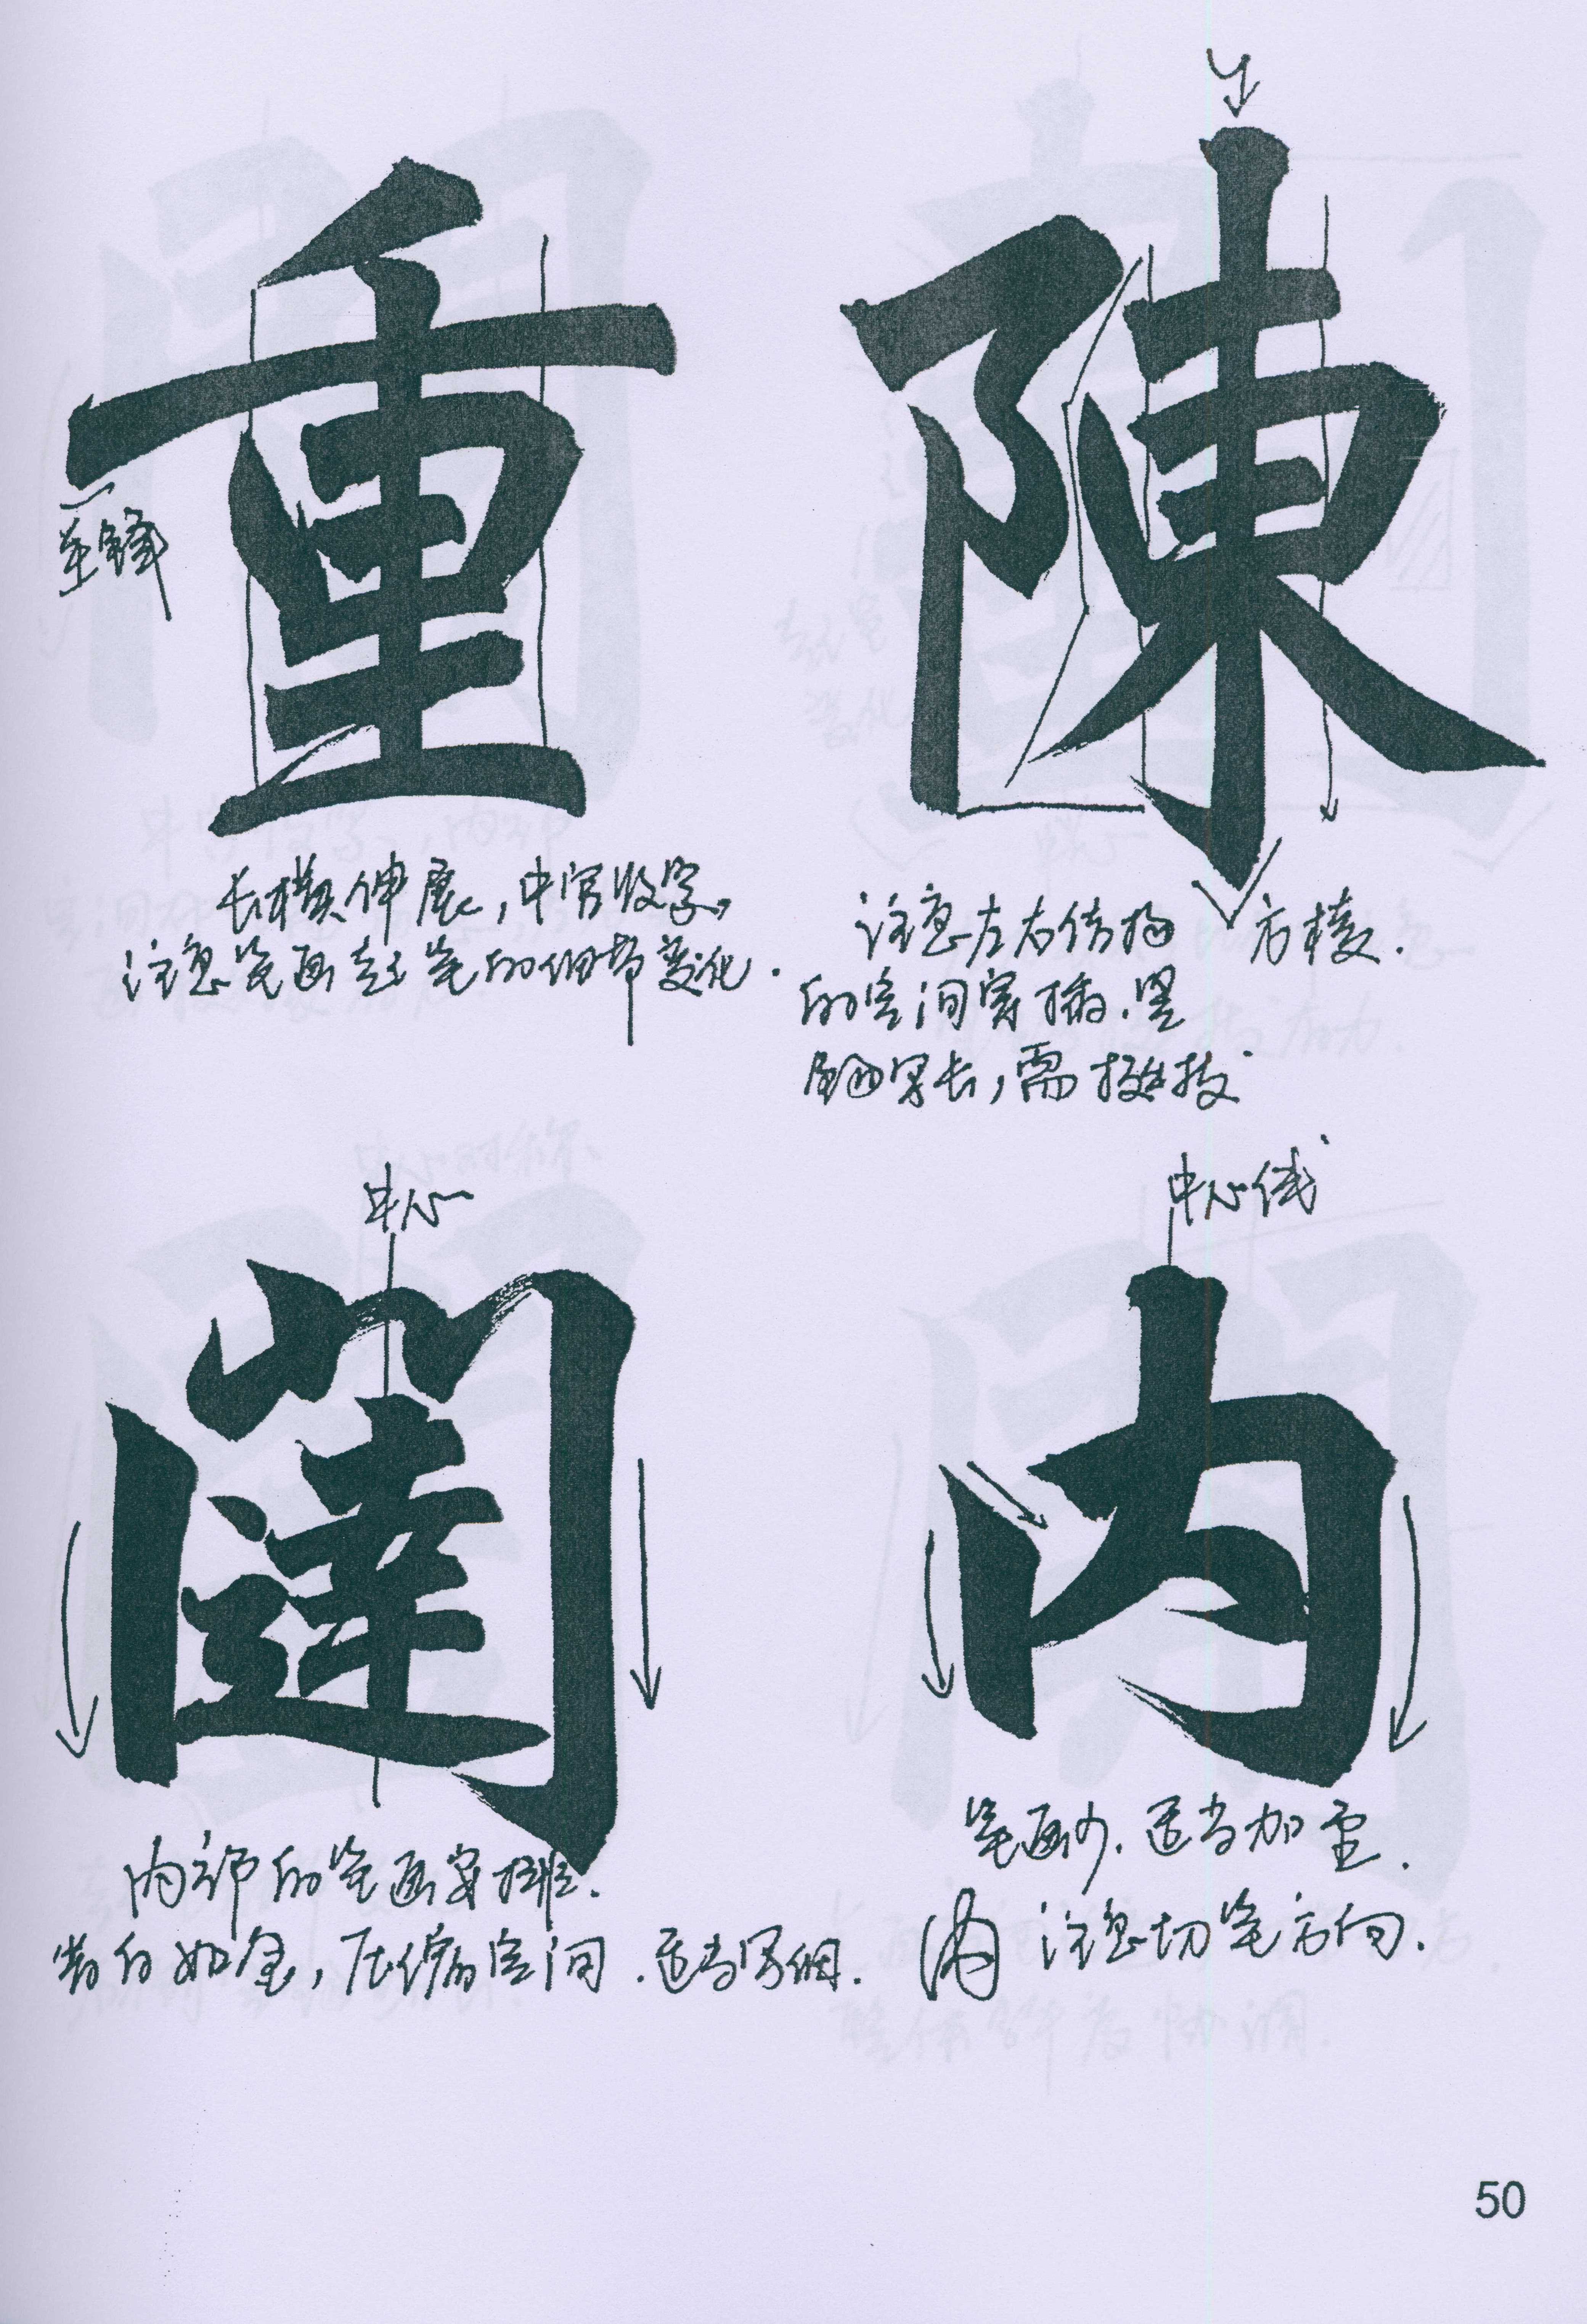 重
陳
至锋
长横伸展,中宫收字。
注意笔画起笔的细节变化.
注意左右结构
方棱.
的空间穿插.竖
画写长,需挺拔
中心
闥
中心线
内
内部的笔画安排.
惜白如金,压缩空间.适当写细.
笔画少.适当加重.
内 注意切笔方向.
50